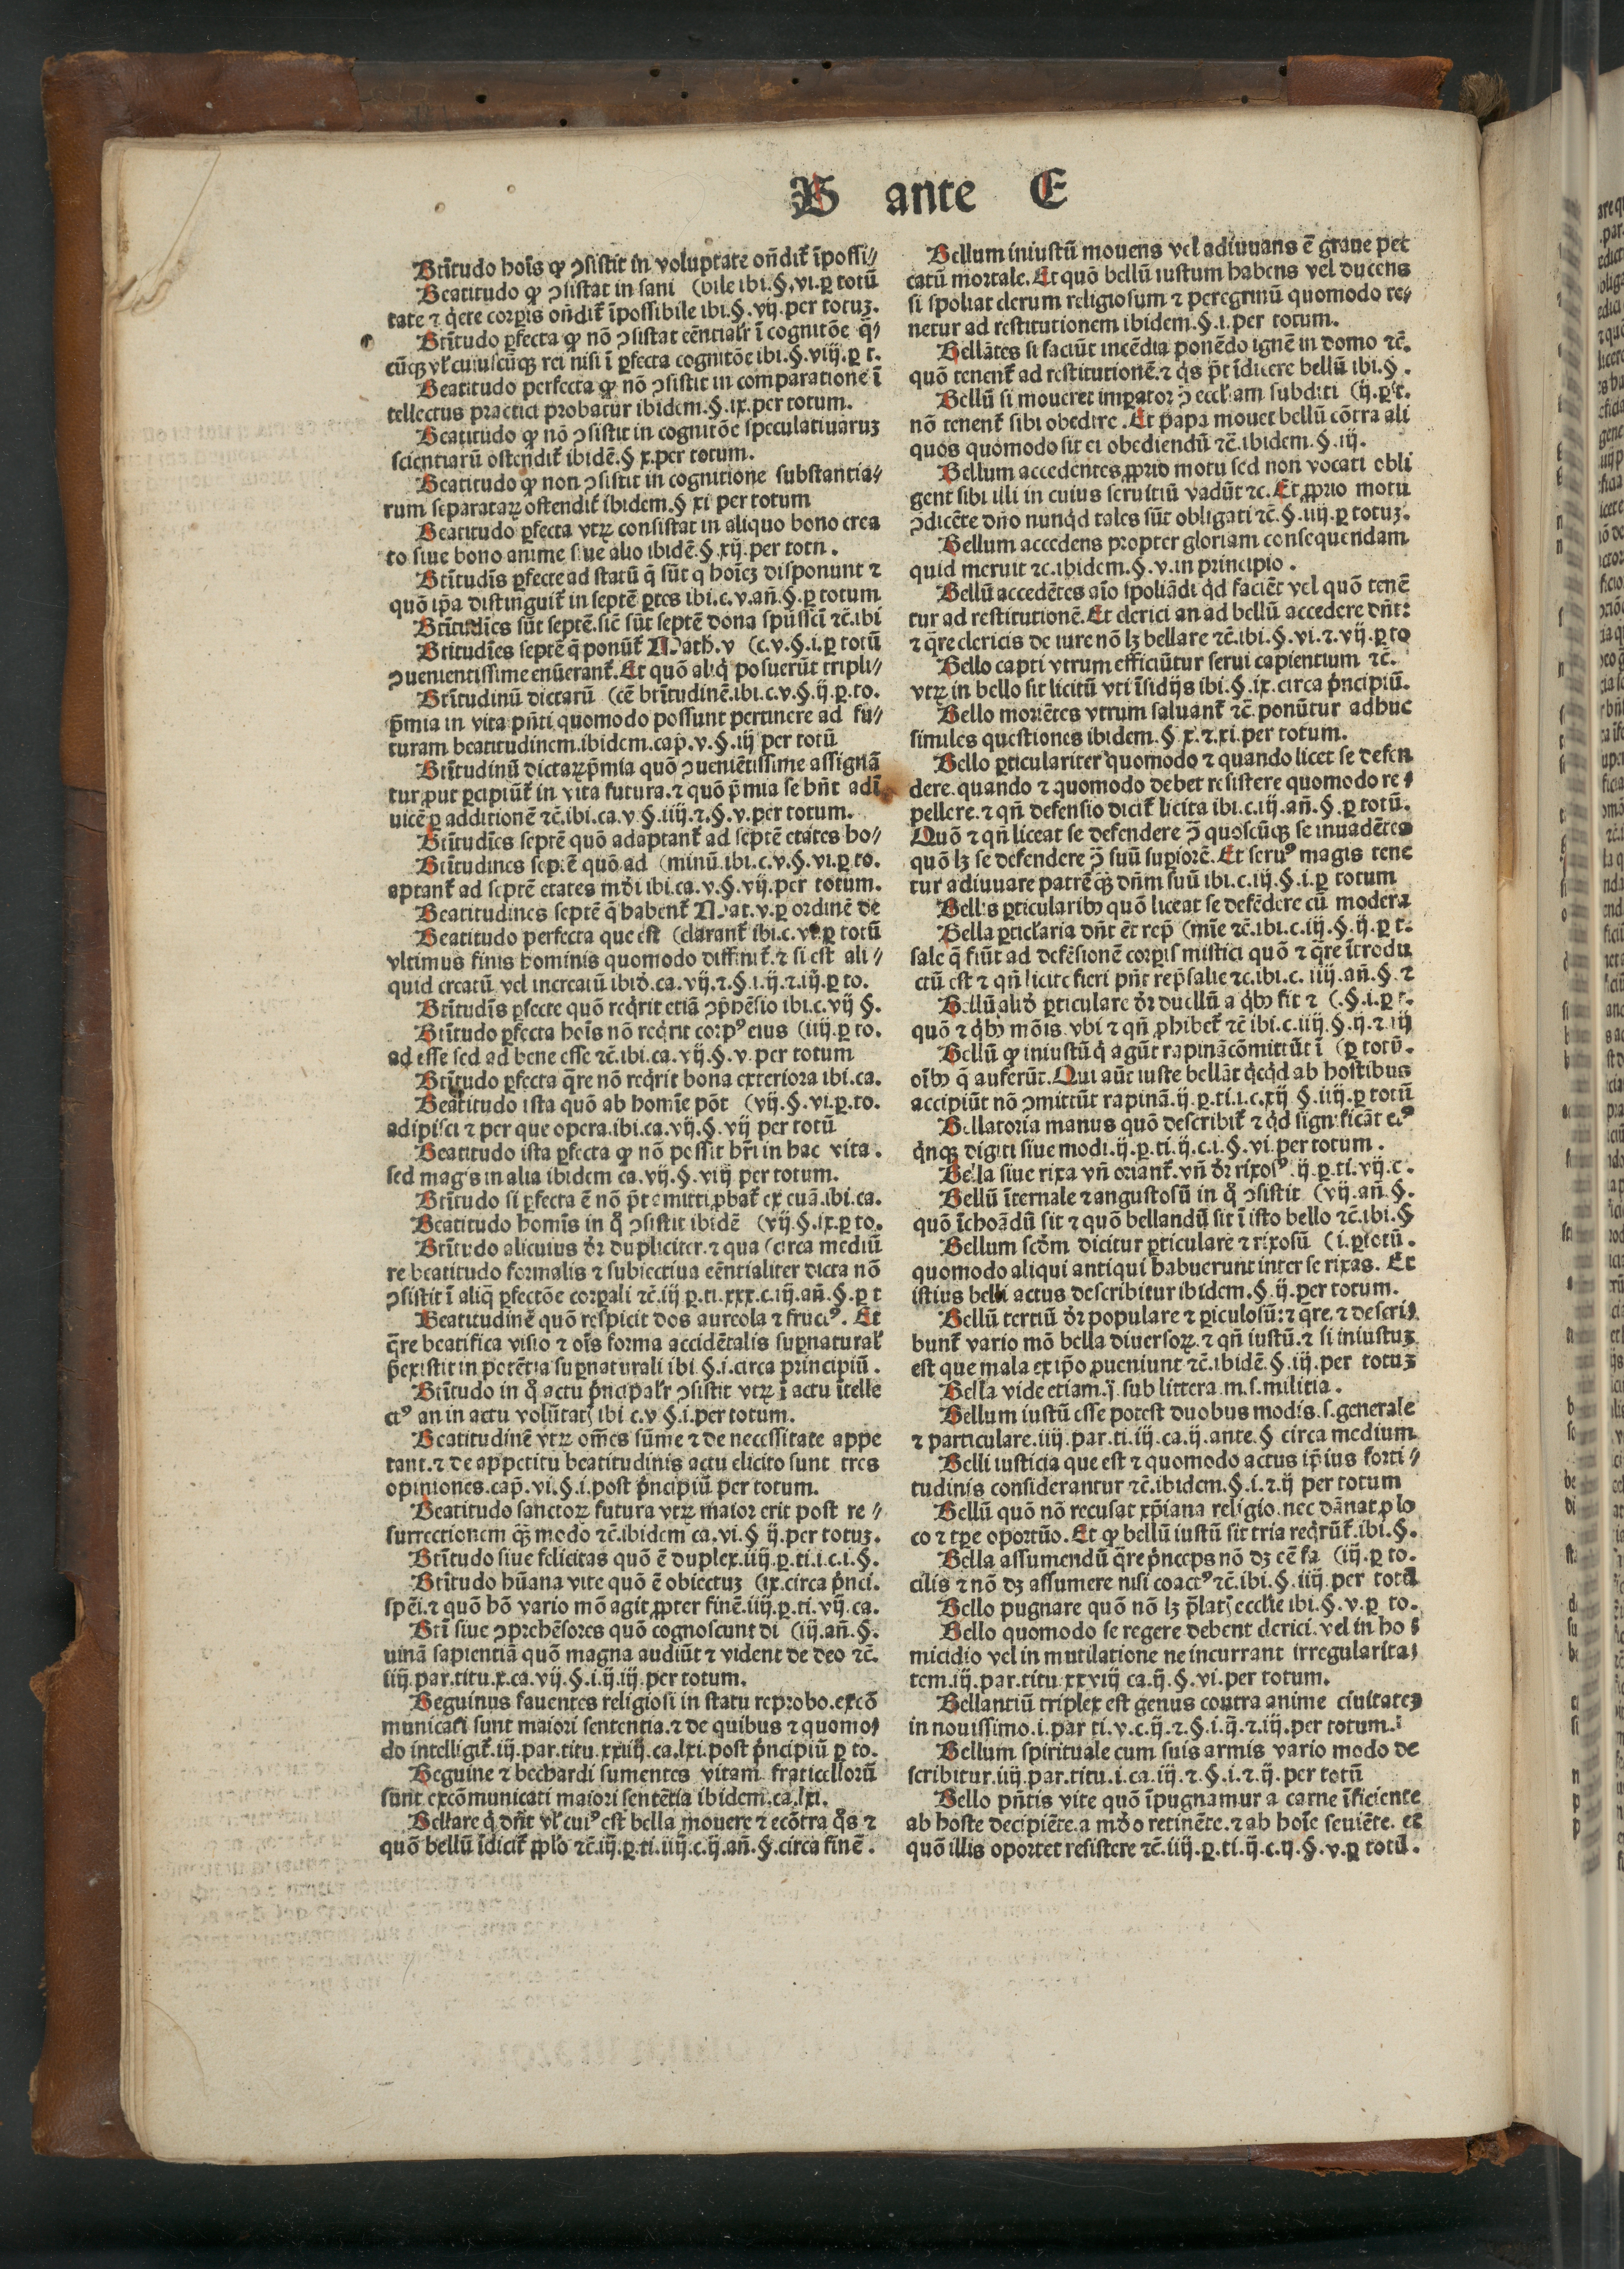 B ante E
Btītudo hoīs ꝙ ↄsistit in voluptate oñdit̃ īpossi⸗
Beatitudo ꝙ ↄsistat in sani (bile ibi.§.vi.ꝑ totū
tate ⁊ q̄ete corꝑis oñdit̃ īpossibile ibi.§.vij.per totuꝫ.
Btītudo ꝑfecta ꝙ nō ↄsistat eēntialr̄ ī cognitōe q̄⸗
cūqꝫ vl̄ cuiuscūqꝫ rei nisi ī ꝑfecta cognitōe ibi.§.viij.ꝑ t.
Beatitudo perfecta ꝙ nō ↄsistit in comparatione ī
tellectus practici probatur ibidem.§.ix.per totum.
Beatitudo ꝙ nō ↄsistit in cognitōe speculatiuaruꝫ
scientiarū ostendit̃ ibidē.§ x.per totum.
Beatitudo ꝙ non ↄsistit in cognitione substantia⸗
rum separataꝝ ostendit̃ ibidem.§ xi per totum
Beatitudo ꝑfecta vtꝝ consistat in aliquo bono crea
to siue bono anime siue alio ibidē.§.xij.per totū.
Btītudīs ꝑfecte ad statū q̄ sūt q hoīeꝫ disponunt ⁊
quō ip̄a distinguit̃ in septē ꝑtes ibi.c.v.añ.§.ꝑ totum
Btītudīes sūt septē.sic̄ sūt septē dona spūssci ⁊c̄.ibi
Btitudīes septē q̄ ponūt̃ Math.v (c.v.§.i.ꝑ totū
ↄuenientissime enūerant̃.Et quō aliq̄ posuerūt tripli⸗
Btītudinū dictarū (cē btītudinē.ibi.c.v.§.ij.ꝑ.to.
p̄mia in vita pñti quomodo possunt pertinere ad fu⸗
turam beatitudinem.ibidem.cap.v.§.iij per totū
Btītudinū dictaꝝ p̄mia quō ↄueniētissime assignā
tur ꝓut ꝑcipiūt̃ in vita futura.⁊ quō p̄mia se hñt adī
uicē ꝑ additionē ⁊c̄.ibi.ca.v §.iiij.⁊.§.v.per totum.
Btītudīes septē quō adaptant̃ ad septē etates ho⸗
Btītudines septē quō ad (minū.ibi.c.v.§.vi.ꝑ.to.
aptant̃ ad septē etates mōi ibi.ca.v.§.vij.per totum.
Beatitudines septē q̄ habent̃ Mat.v.ꝑ ordinē de
Beatitudo perfecta que est (clarant̃ ibi.c.vi.ꝑ totū
vltimus finis hominis quomodo diffinit̃.⁊ si est ali⸗
quid creatū vel increatū ibid̄.ca.vij.⁊.§.i.ij.⁊.iij.ꝑ to.
Btītudīs ꝑfecte quō req̄rit etiā ↄp̄hēsio ibi.c.vij §.
Btītudo ꝑfecta hoīs nō req̄rit corpꝰ eius (iiij.ꝑ to.
ad esse sed ad bene esse ⁊c̄.ibi.ca.vij.§.v.per totum
Btītudo ꝑfecta q̄re nō req̄rit bona exteriora ibi.ca.
Beatitudo ista quō ab homīe pōt (vij.§.vi.ꝑ.to.
adipisci ⁊ per que opera.ibi.ca.vij.§.vij per totū
Beatitudo ista ꝑfecta ꝙ nō possit hr̄i in hac vita.
sed magis in alia ibidem ca.vij.§.viij per totum.
Btītudo si ꝑfecta ē nō p̄t emitti ꝓbat̃ ex cuā.ibi.ca.
Beatitudo homīs in qͦ ↄsistit ibidē (vij.§.ix.ꝑ to.
Btītudo alicuius dr̄ dupliciter.⁊ qua (circa mediū
re beatitudo formalis ⁊ subiectiua eēntialiter dicta nō
ↄsistit ī aliq̄ ꝑfectōe corꝑali ⁊c̄.iij ꝑ.ti.xxx.c.iij.añ.§.ꝑ t
Beatitudinē quō respicit dos aureola ⁊ fructꝰ. Et
q̄re beatifica visio ⁊ oīs forma accidētalis suꝑnatural̄
p̄existit in potētia suꝑnaturali ibi §.i.circa principiū.
Btītudo in qͦ actu p̄ncipalr̄ ↄsistit vtꝝ ī actu ītelle
ctꝰ an in actu volūtatꝭ ibi c.v §.i.per totum.
Beatitudinē vtꝝ om̄es sūme ⁊ de necessitate appe
tant.⁊ de appetitu beatitudinis actu elicito sunt tres
opiniones.cap̄.vi.§.i.post p̄ncipiū per totum.
Beatitudo sanctoꝝ futura vtꝝ maior erit post re⸗
surrectionem qꝫ̄ modo ⁊c̄.ibidem ca.vi.§ ij.per totuꝫ.
Btītudo siue felicitas quō ē duplex.iiij.ꝑ.ti.i.c.i.§.
Btītudo hūana vite quō ē obiectuꝫ (ix.circa p̄nci.
spēi.⁊ quō hō vario mō agit ꝓpter finē.iiij.ꝑ.ti.vij.ca.
Btī siue ↄprehēsores quō cognoscunt di (iij.añ.§.
uinā sapientiā quō magna audiūt ⁊ vident de deo ⁊c̄.
iiij.par.titu.x.ca.vij.§.i.ij.iij.per totum.
Beguinus fauentes religiosi in statu reprobo.excō
municati sunt maiori sententia.⁊ de quibus ⁊ quomo⸗
do intelligit̃.iij.par.titu.xxiiij.ca.lxi.post p̄ncipiū ꝑ to.
Beguine ⁊ bechardi sumentes vitam fraticellorū
sunt excōmunicati maiori sentētia ibidem.ca.lxi.
Bellare q̄ dñt vl̄ cuiꝰ est bella mouere ⁊ ecōtra qͦs ⁊
quō bellū īdicit̃ ꝓplo ⁊c̄.iij.ꝑ.ti.iiij.c.ij.añ.§.circa finē.
Bellum iniustū mouens vel adiuuans ē graue pec
catū mortale.Et quō bellū iustum habens vel ducens
si spoliat clerum religiosum ⁊ peregrinū quomodo te⸗
netur ad restitutionem ibidem.§.i.per totum.
Bellātes si faciūt incēdia ponēdo ignē in domo ⁊c̄.
quō tenent̃ ad restitutionē.⁊ q̄s p̄t īdicere bellū ibi.§.
Bellū si moueret imꝑator ↄ̄ eccl̄iam subditi (ij.ꝑ t.
nō tenent̃ sibi obedire.Et papa mouet bellū cōtra ali
quos quomodo sit ei obediendū ⁊c̄.ibidem.§.iij.
Bellum accedentes ꝓprio motu sed non vocati obli
gent sibi illi in cuius seruitiū vadūt ⁊c.Et ꝓprio motu
ↄdicēte dn̄o nunq̄d tales sūt obligati ⁊c̄.§.iiij.ꝑ totuꝫ.
Bellum accedens propter gloriam consequendam
quid meruit ⁊c.ibidem.§.v.in principio.
Bellū accedētes aīo spoliādi q̄d faciēt vel quō tenē
tur ad restitutionē.Et clerici an ad bellū accedere dñt:
⁊ q̄re clericis de iure nō lꝫ bellare ⁊c̄.ibi.§.vi.⁊.vij.ꝑ to
Bello capti vtrum efficiūtur serui capientium ⁊c̄.
vtꝝ in bello sit licitū vti īsidijs ibi.§.ix.circa p̄ncipiū.
Bello moriētes vtrum saluant̃ ⁊c̄.ponūtur adhuc
similes questiones ibidem.§ x.⁊.xi.per totum.
Bello ꝑticulariter quomodo ⁊ quando licet se defen
dere.quando ⁊ quomodo debet resistere quomodo re⸗
pellere.⁊ qñ defensio dicit̃ licita ibi.c.iij.añ.§.ꝑ totū.
Quō ⁊ qñ liceat se defendere ↄ̄ quoscūqꝫ se inuadētes
quō lꝫ se defendere ↄ̄ suū suꝑiorē.Et seruꝰ magis tene
tur adiuuare patrē qꝫ̄ dñm suū ibi.c.iij.§.i.ꝑ totum
Bellis ꝑticularibꝰ quō liceat se defēdere cū modera
Bella ꝑticl̄aria dñt ēt rep̄ (mīe ⁊c̄.ibi.c.iij.§.ij.ꝑ t.
sale q̄ fiūt ad defēsionē corꝑis mistici quō ⁊ q̄re ītrodu
ctū est ⁊ qñ licite fieri pñt rep̄salie ⁊c.ibi.c. iiij.añ.§.⁊
Bellū aliud̄ ꝑticulare dr̄ duellū a q̄bꝰ fit ⁊ (.§.i.ꝑ t.
quō ⁊ q̄bꝰ mōis.vbi ⁊ qñ ꝓhibet̃ ⁊c̄ ibi.c.iiij.§.ij.⁊.iij
Bellū ꝙ iniustū q̄ agūt rapinā cōmittūt ī (ꝑ totū.
oībꝰ q̄ auferūt.Qui aūt iuste bellāt q̄cq̄d ab hostibus
accipiūt nō ↄmittūt rapinā.ij.ꝑ.ti.i.c.xij §.iiij.ꝑ totū
Bellatoria manus quō describit̃ ⁊ q̄d significāt eiꝰ
q̄nqꝫ digiti siue modi.ij.ꝑ.ti.ij.c.i.§.vi.per totum.
Bella siue rixa vñ oriant̃.vñ dr̄ rixosꝰ.ij.ꝑ.ti.vij.c.
Bellū īternale ⁊ angustosū in qͦ ↄsistit (vij.añ.§.
quō īchoādū sit ⁊ quō bellandū sit ī isto bello ⁊c̄.ibi.§
Bellum scd̄m dicitur ꝑticulare ⁊ rixosū (i.ꝑ totū.
quomodo aliqui antiqui habuerunt inter se rixas. Et
istius belli actus describitur ibidem.§.ij.per totum.
Bellū tertiū dr̄ populare ⁊ ꝑiculosū:⁊ q̄re.⁊ descri⸗
bunt̃ vario mō bella diuersoꝝ.⁊ qñ iustū.⁊ si iniustuꝫ
est que mala ex ip̄o ꝓueniunt ⁊c̄.ibidē.§.iij.per totuꝫ
Bella vide etiam.j̄ sub littera.m.s.militia.
Bellum iustū esse potest duobus modis.s.generale
⁊ particulare.iiij.par.ti.iij.ca.ij.ante.§ circa medium
Belli iusticia que est ⁊ quomodo actus ip̄ius forti⸗
tudinis considerantur ⁊c̄.ibidem.§.i.⁊.ij per totum
Bellū quō nō recusat xp̄iana religio.nec dānat ꝓ lo
co ⁊ tꝑe oportūo.Et ꝙ bellū iustū sit tria req̄rūt̃.ibi.§.
Bella assumendū q̄re p̄nceps nō dꝫ eē fa (iij.ꝑ to.
cilis ⁊ nō dꝫ assumere nisi coactꝰ ⁊c̄.ibi.§.iiij.per totū
Bello pugnare quō nō lꝫ p̄latꝭ eccl̄ie ibi.§.v.ꝑ to.
Bello quomodo se regere debent clerici.vel in ho⸗
micidio vel in mutilatione ne incurrant irregularita⸗
tem.iij.par.titu.xxviij ca.ij.§.vi.per totum.
Bellantiū triplex est genus contra anime ciuitateꝫ
in nouissimo.i.par ti.v.c.ij.⁊.§.i.ij.⁊.iij.per totum.
Bellum spirituale cum suis armis vario modo de
scribitur.iiij.par.titu.i.ca.iij.⁊.§.i.⁊.ij.per totū
Bello pñtis vite quō īpugnamur a carne īficiente
ab hoste decipiēte.a mūdo retinēte.⁊ ab hoīe seuiēte. et
quō illis oportet resistere ⁊c̄.iiij.ꝑ.ti.ij.c.ij.§.v.ꝑ totū.